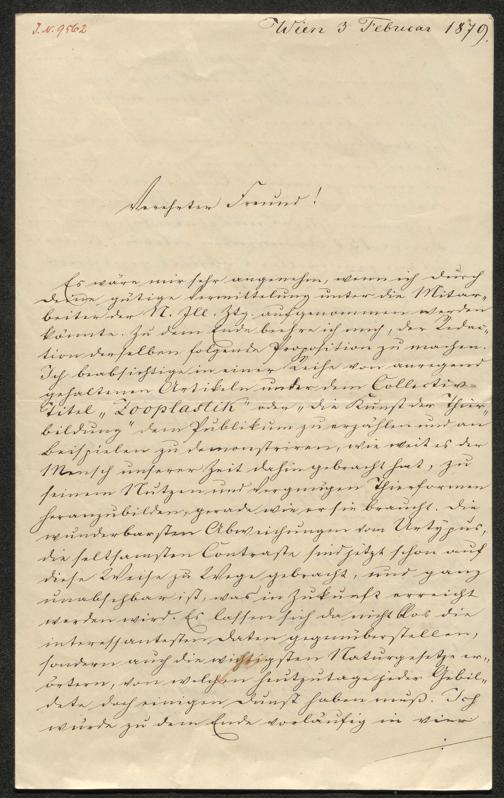 J.N. 9562
Wien 3 Februar 1879.
Verehrter Freund!
Es wäre mir sehr angenehm, wenn ich durch
Deine gütige Vermittelung unter die Mitar-
beiter der N. Ill. Ztg. aufgenommen werden
könnte. Zu dem Ende beehre ich mich, der Redac-
tion derselben folgende Proposition zu machen.
Ich beabsichtige in einer Reihe von anregend
gehaltenen Artikeln unter dem Collectiv-
Titel „Zooplastik" oder „die Kunst der Thier-
bildung" dem Publikum zu erzählen und an
Beispielen zu demonstriren, wie weit es der
Mensch unserer Zeit dahin gebracht hat, zu
seinem Nutzen und Vergnügen Thierformen
heranzubilden, gerade wie er sie braucht. Die
wunderbarsten Abweichungen vom Urtypus,
die seltsamsten Contraste sind jetzt schon auf
diese Weise zu Wege gebracht, und ganz
unabsehbar ist, was in Zukunft erreicht
werden wird. Es lassen sich da nicht blos die
interessantesten Daten gegenüberstellen,
sondern auch die wichtigsten Naturgesetze er-
örtern, von welchen heutzutage jeder Gebil-
dete doch einigen Dunst haben muß. Ich
würde zu dem Ende vorläufig in vier